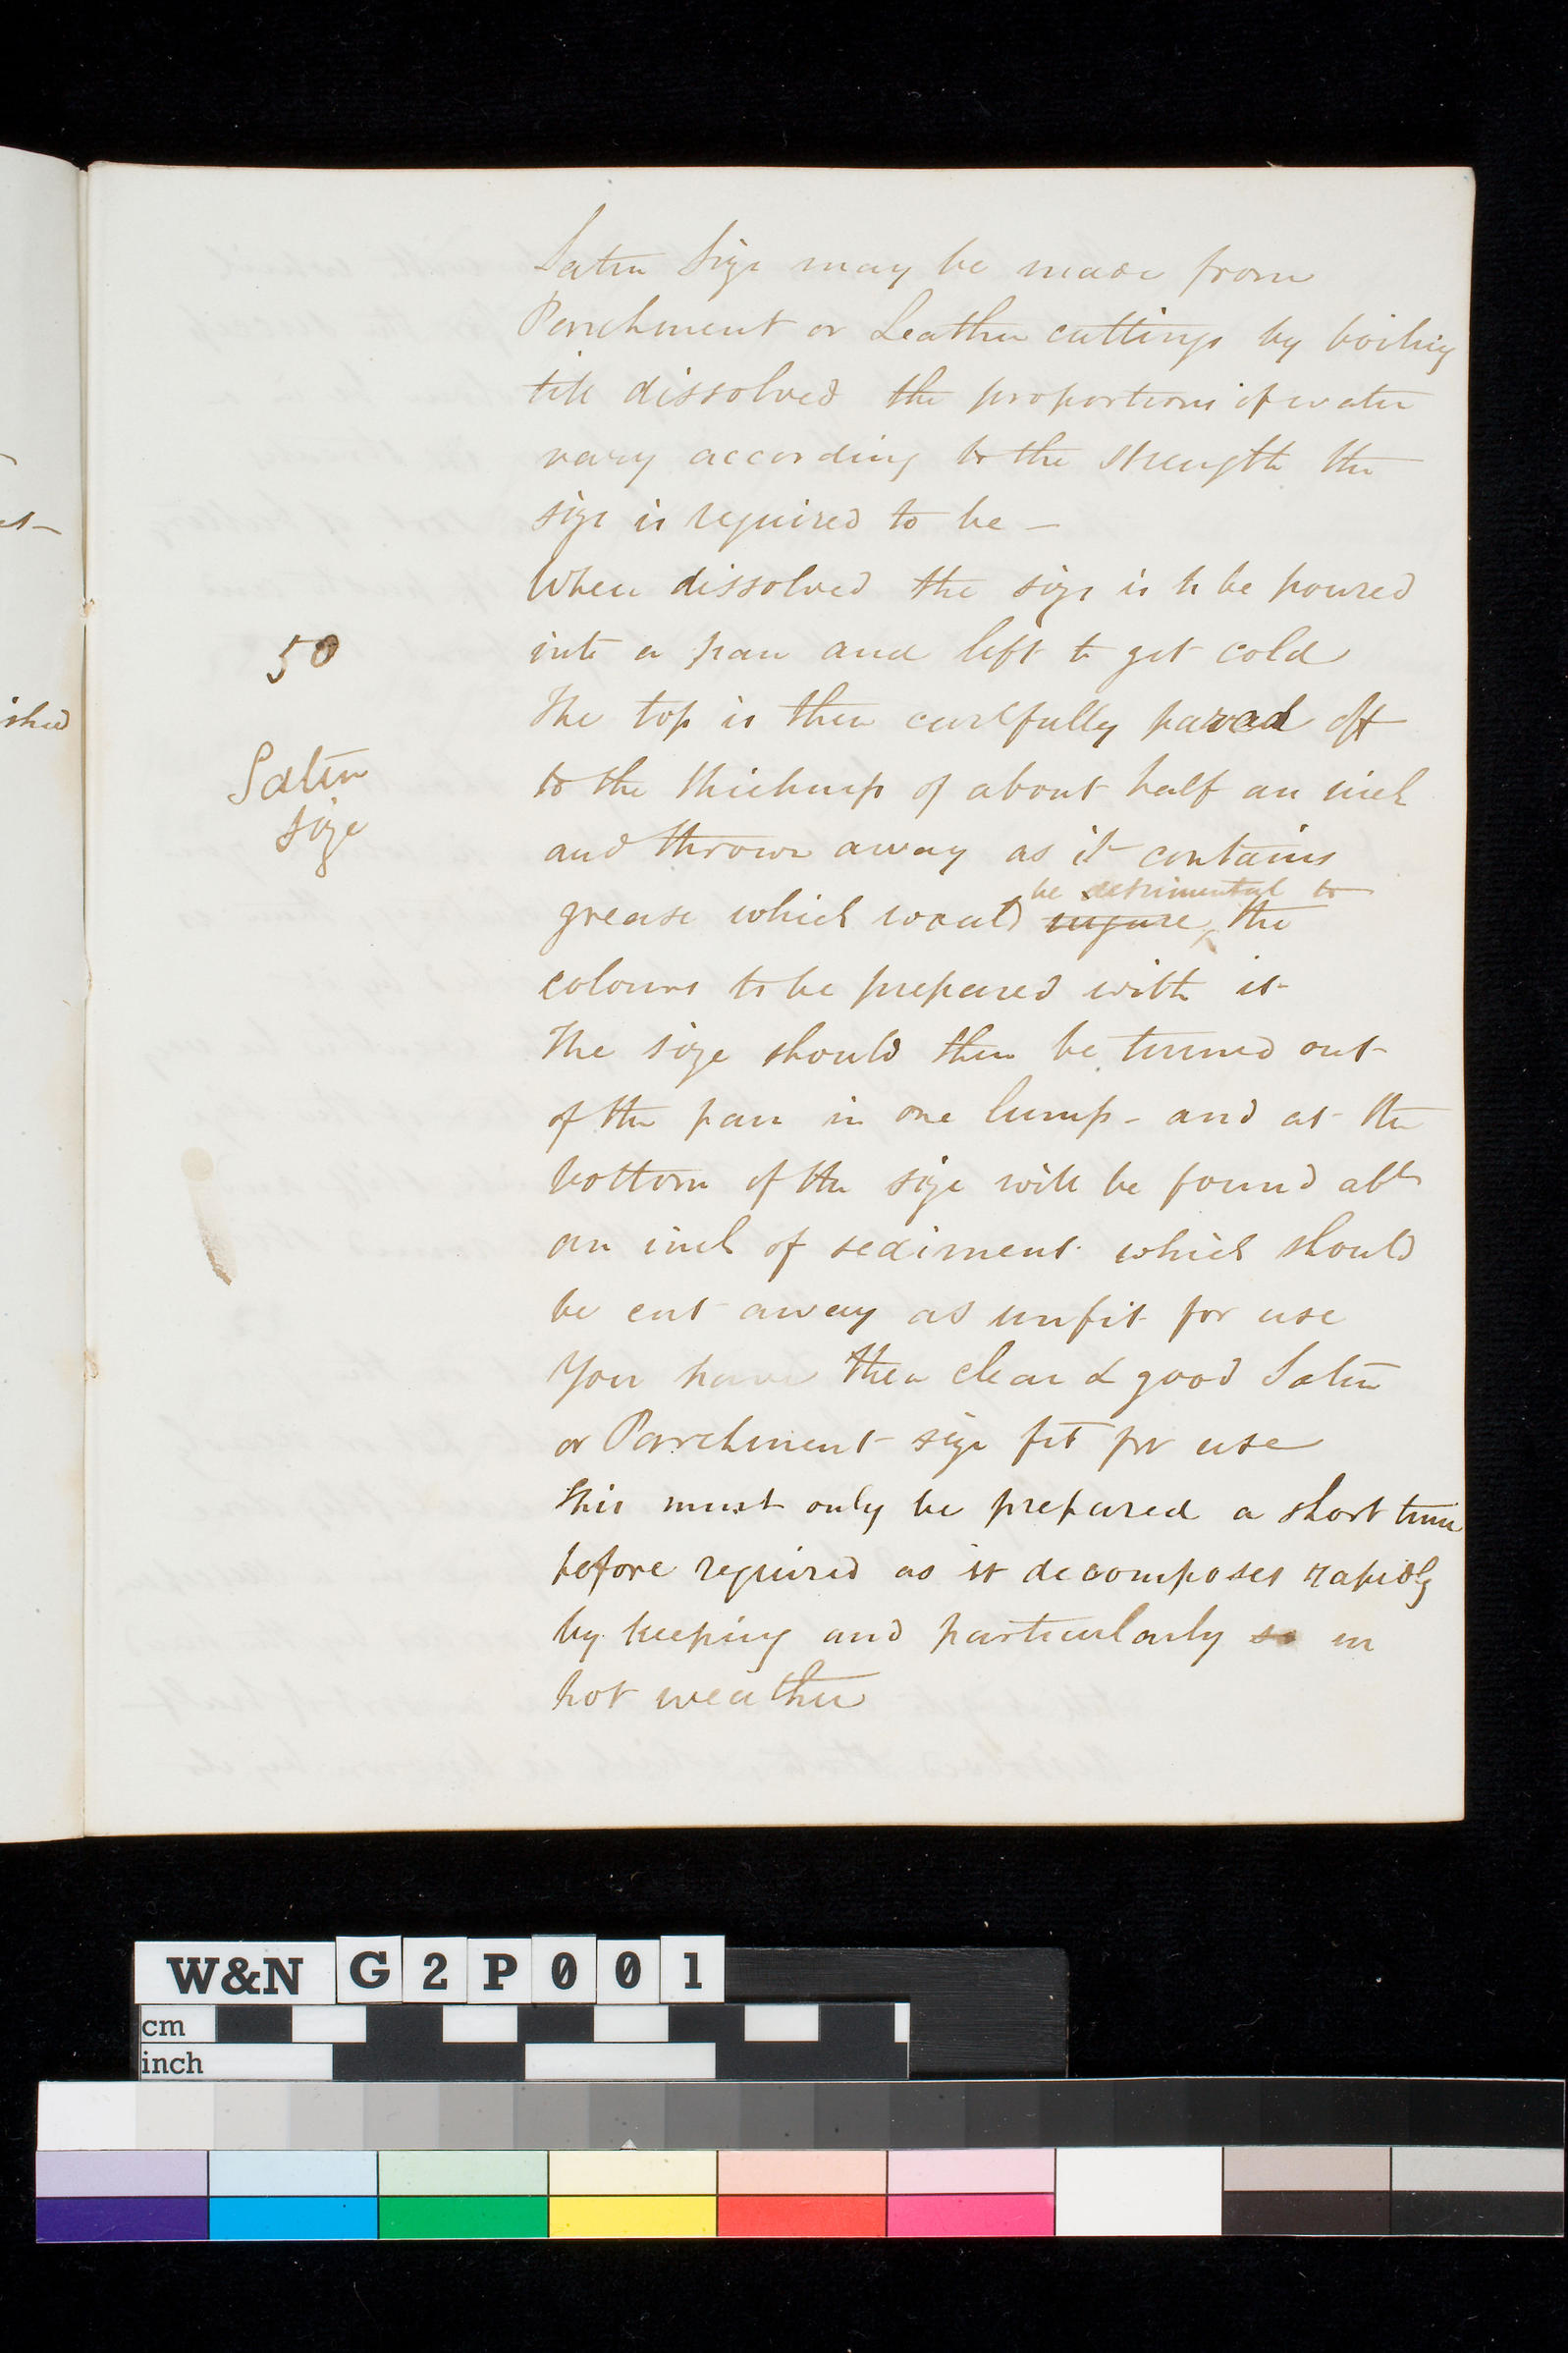 Satin Size may be made from
Parchment or Leather cuttings by boiling
till dissolved the proportions of water
vary according to the strength the
size is required to be —
When dissolved the size is to be poured
50
into a pan and left to get cold
The top is then carefully pared off
Satin
size
to the thickness of about half an inch
and thrown away as it contains
be detrimental to
grease which would injure the
colours to be prepared with it
The size should then be turned out
of the pan in one lump - and at the
bottom of the size will be found abt
an inch of sediment which should
be cut away as unfit for use
You have then clear & good Satin
or Parchment size fit for use
This must only be prepared a short time
before required as it decomposes rapidly
by keeping and particularly so in
hot weather
W&N G2P001
cm
inch